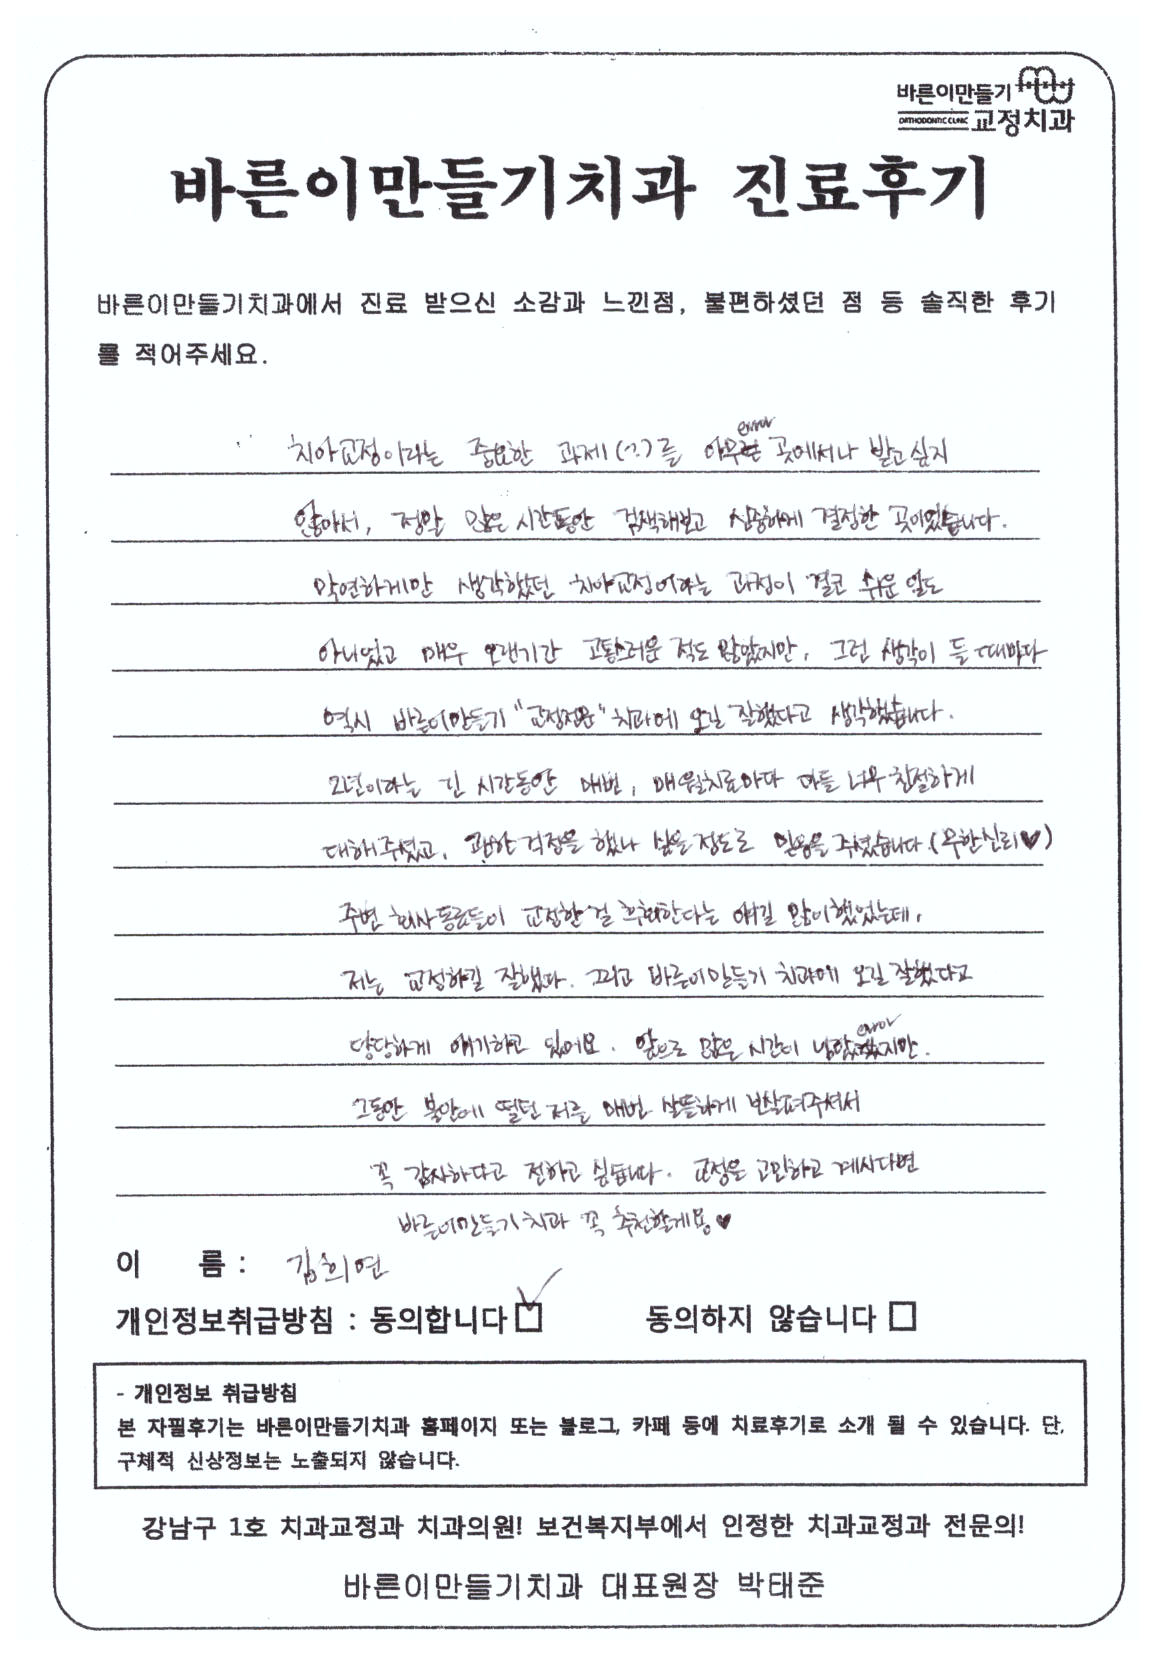 바른이만들기
ORTHODONTIC CLINIC 교정치과
바른이만들기치과 진료후기
바른이만들기치과에서 진료 받으신 소감과 느낀점, 불편하셨던 점 등 솔직한 후기
를 적어주세요.
error
치아교정이라는 중요한 과제(?)를 아무런 곳에서나 받고싶지
않아서, 정말 많은 시간동안 검색해보고 신중하게 결정한 곳이었습니다.
막연하게만 생각했던 치아교정이라는 과정이 결코 쉬운 일도
아니었고 매우 오랜기간 고통스러운 적도 많았지만, 그런 생각이 들 때마다
역시 바른이만들기 "교정전문" 치과에 오길 잘했다고 생각했습니다.
2년이라는 긴 시간동안 매번, 매월치료마다 다들 너무 친절하게
대해주셨고, 괜한 걱정을 했나 싶을 정도로 믿음을 주셨습니다.(무한신뢰♥)
주변 회사동료들이 교정한걸 후회한다는 얘길 많이했었는데,
저는 교정하길 잘했다. 그리고 바른이만들기 치과에 오길 잘했다고
error
당당하게 얘기하고 있어요. 앞으로 많은 시간이 남았지만.
그동안 불안에 떨던 저를 매번 살뜰하게 보살펴주셔서
꼭 감사하다고 전하고 싶습니다. 교정을 고민하고 계시다면
바른이만들기치과 꼭 추천할게용♥
이 름 : 김희연
개인정보취급방침 : 동의합니다 동의하지 않습니다
- 개인정보 취급방침
본 자필후기는 바른이만들기치과 홈페이지 또는 블로그, 카페 등에 치료후기로 소개 될 수 있습니다. 단,
구체적 신상정보는 노출되지 않습니다.
강남구 1호 치과교정과 치과의원! 보건복지부에서 인정한 치과교정과 전문의!
바른이만들기치과 대표원장 박태준